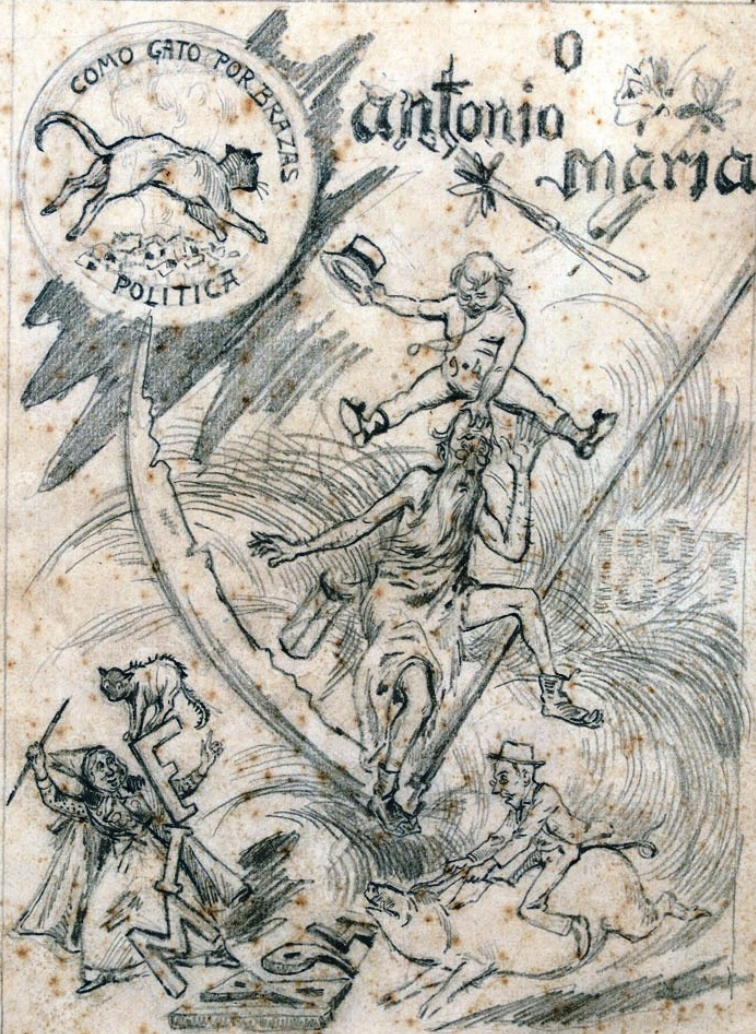 COMO GATO POR BRAZAS
POLITICA
O
antonio
maria
94
1893
1894